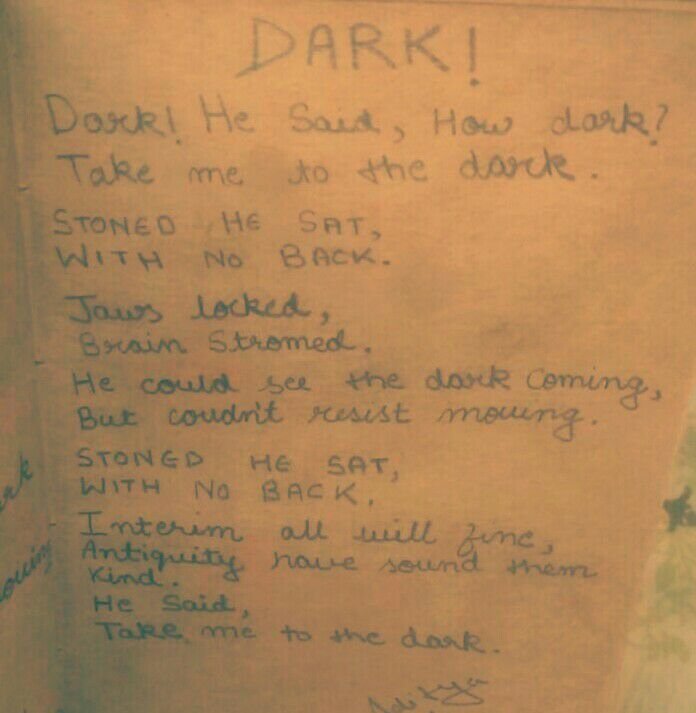 DARK!
Dark! He Said, How dark?
Take me to the dark.
STONED HE SAT,
WITH NO BACK.
Jaws locked,
Brain Stromed.
He could see the dark Coming,
But coudn't resist moving.
STONED HE SAT,
WITH NO BACK.
Interim all will fine,
Antiquity have sound them
Kind.
He Said,
Take me to the dark.
Aditya